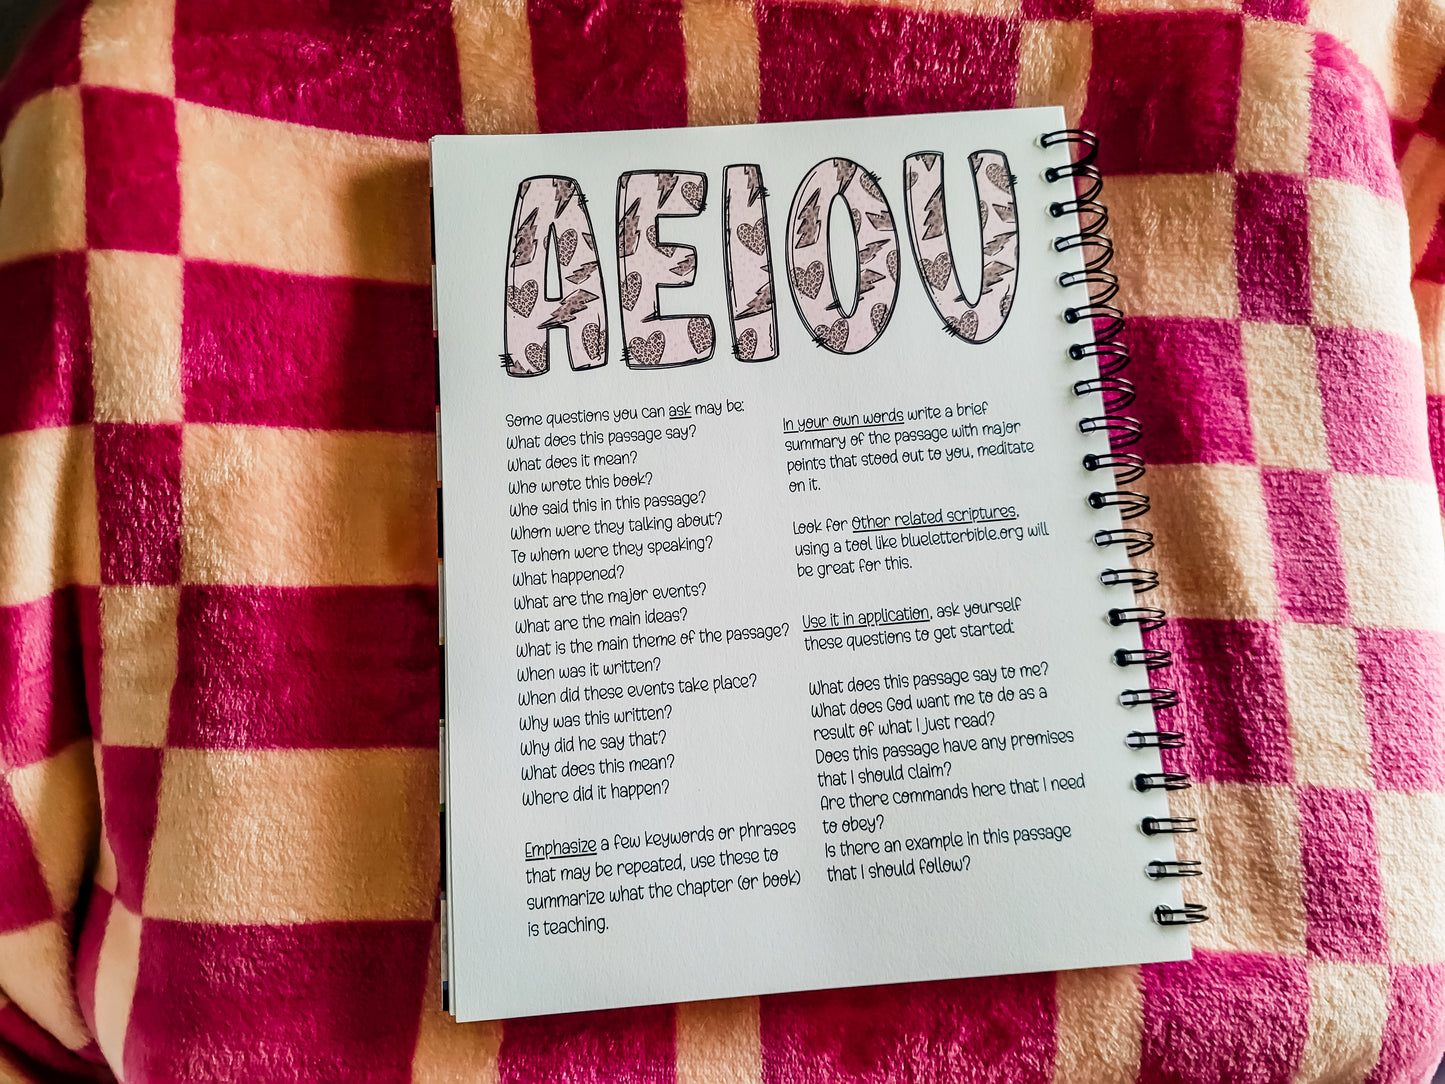 AEIOU
Some questions you can ask may be:
What does this passage say?
What does it mean?
Who wrote this book?
Who said this in this passage?
Whom were they talking about?
To whom were they speaking?
What happened?
What are the major events?
What are the main ideas?
What is the main theme of the passage?
When was it written?
When did these events take place?
Why was this written?
Why did he say that?
What does this mean?
Where did it happen?
Emphasize a few keywords or phrases
that may be repeated, use these to
summarize what the chapter (or book)
is teaching.
In your own words write a brief
summary of the passage with major
points that stood out to you, meditate
on it.
Look for Other related scriptures,
using a tool like blueletterbible.org will
be great for this.
Use it in application, ask yourself
these questions to get started:
What does this passage say to me?
What does God want me to do as a
result of what I just read?
Does this passage have any promises
that I should claim?
Are there commands here that I need
to obey?
Is there an example in this passage
that I should follow?